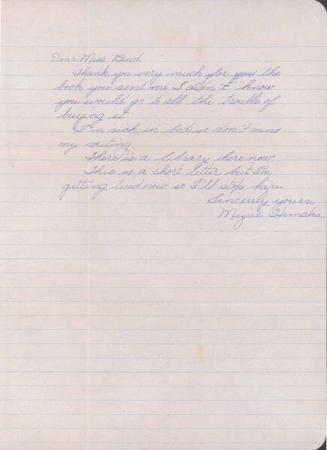 Dear Miss Breed
Thank you very much for your the
book you sent me I didn't know
you would go to all the trouble of
buying it.
I'm sick in bed so don't mind
my writing
There is a library here now.
This is a short letter but I'm
getting tired now so I'll stop here
Sincerely yours,